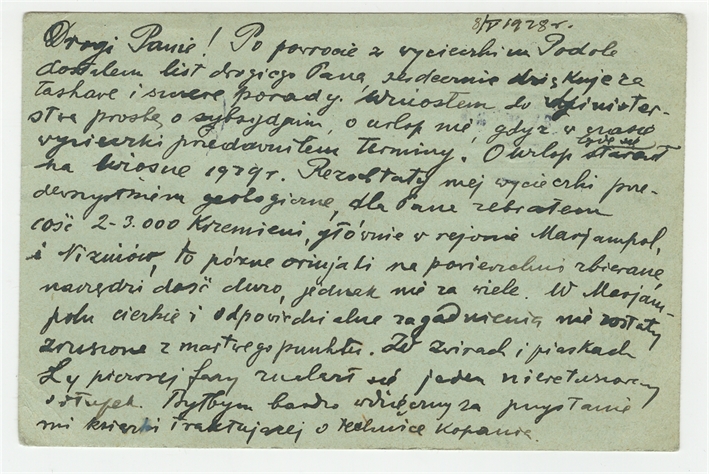 8/V 1928 r.
Drogi Panie! Po powrocie z wycieczki na Podole
dostałem list drogiego Pana, serdecznie dziękuję za
łaskawe i szczere porady. Wniosłem do Minister-
stwa prośbę o subsydjum, o urlop nie, gdyż w czasie
wycieczki przedawniłem terminy. O urlop będę się starał
na wiosnę 1929 r. Rezultaty mej wycieczki prze-
dewszystkiem geologiczne, dla Pana zebrałem
coś 2-3.000 krzemieni, głównie w rejonie Marjampol,
i Niżniów, to późne orinjaki na powierzchni zbierane,
narzędzi dość dużo, jednak nie za wiele. W Marjam-
polu cierkie i odpowiedzialne zagadnienia nie zostały
zruszone z martwego punktu. Ze żwirach i piaskach
Ly pierwszej fazy znalazł się jeden nieretuszowany
słupek. Byłbym bardzo wdzięczny za przysłanie
mi książki traktującej o technice kopania.